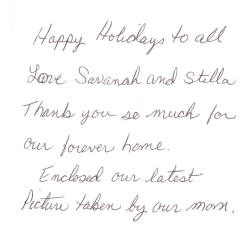 Happy Holidays to all
Love Savanah and Stella
Thank you so much for
our forever home.
Enclosed our latest
Picture taken by our mom.